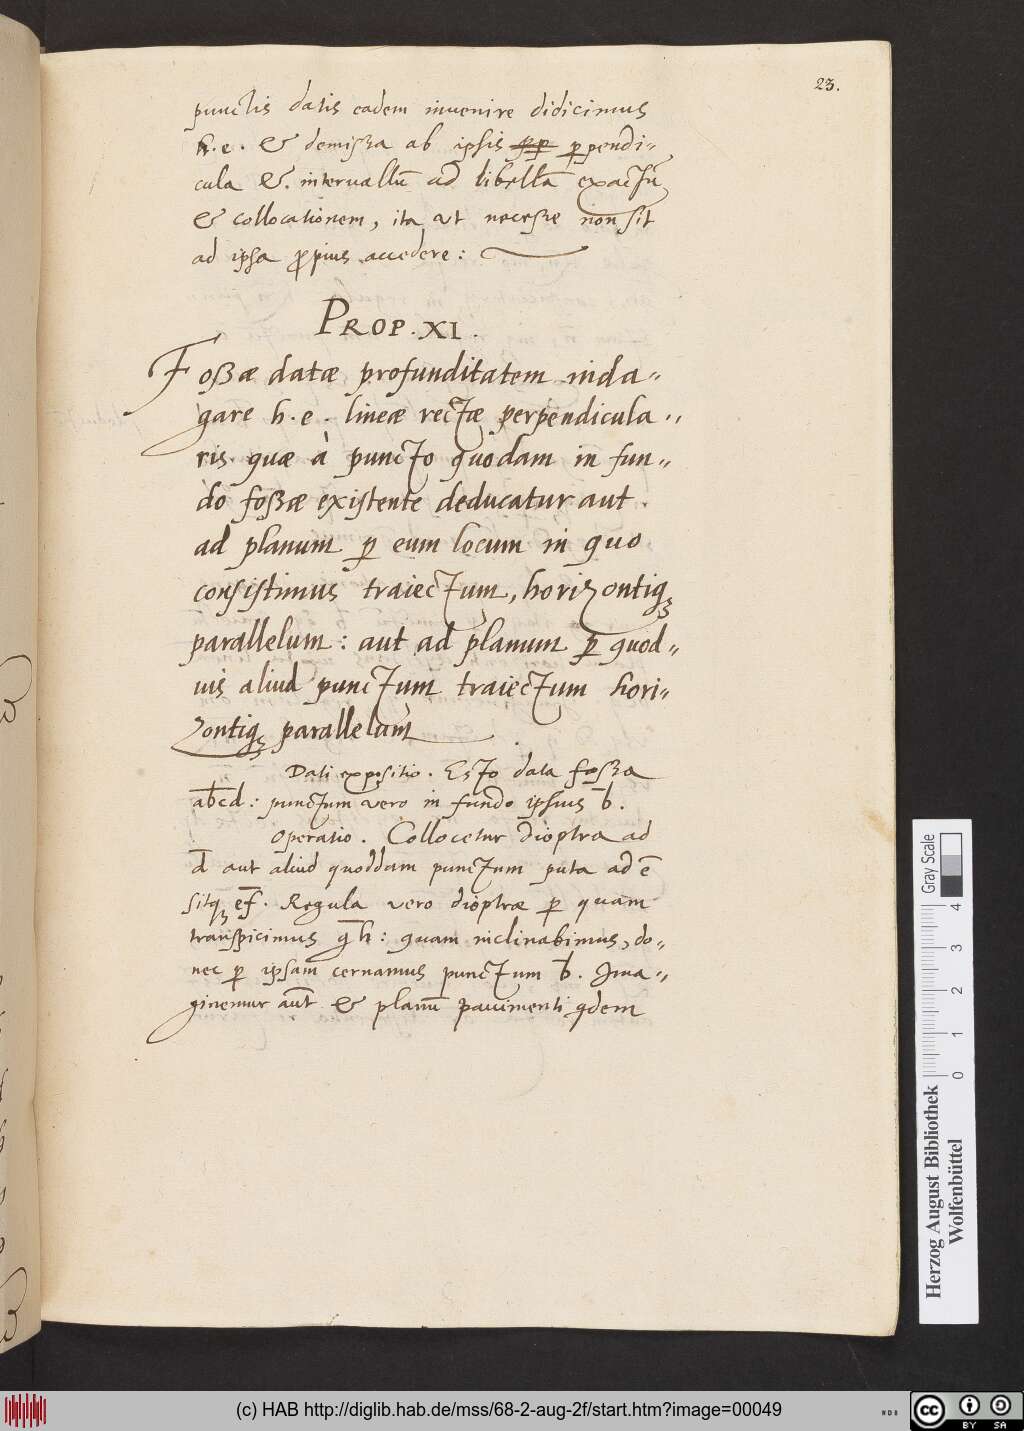 23.
punctis datis eadem invenire didicimus
h.e. & demissa ab ipsis ꝑpendi-
cula &. intervallũ ad libellã exactũ
& collocationem, ita vt necesse non sit
ad ipsa ꝓpius accedere:
PROP. XI.
Foßæ datæ profunditatem inda-
gare h.e. lineæ rectæ perpendicula..
ris quæ à puncto quodam in fun-
do foßæ existente deducatur aut
ad planum ꝑ eum locum in quo
consistimus traiectum, horizontiq;
parallelum: aut ad planum ꝑ quod-
uis aliud punctum traiectum hori-
zontiq; parallelum
Dati expositio. Esto data fossa
abcd: punctum vero in fundo ipsius b.
Operatio. Collocetur dioptra ad
d aut aliud quoddam punctum puta ad e
sitq; ef. Regula vero dioptræ ꝑ quam
transpicimus gh: quam inclinabimus, do-
nec ꝑ ipsam cernamus punctum b. Ima-
ginemur aũt & planũ pauimenti qdem
Gray Scale
0 1 2 3 4
Herzog August Bibliothek
Wolfenbüttel
(c) HAB http://diglib.hab.de/mss/68-2-aug-2f/start.htm?image=00049
cc BY SA